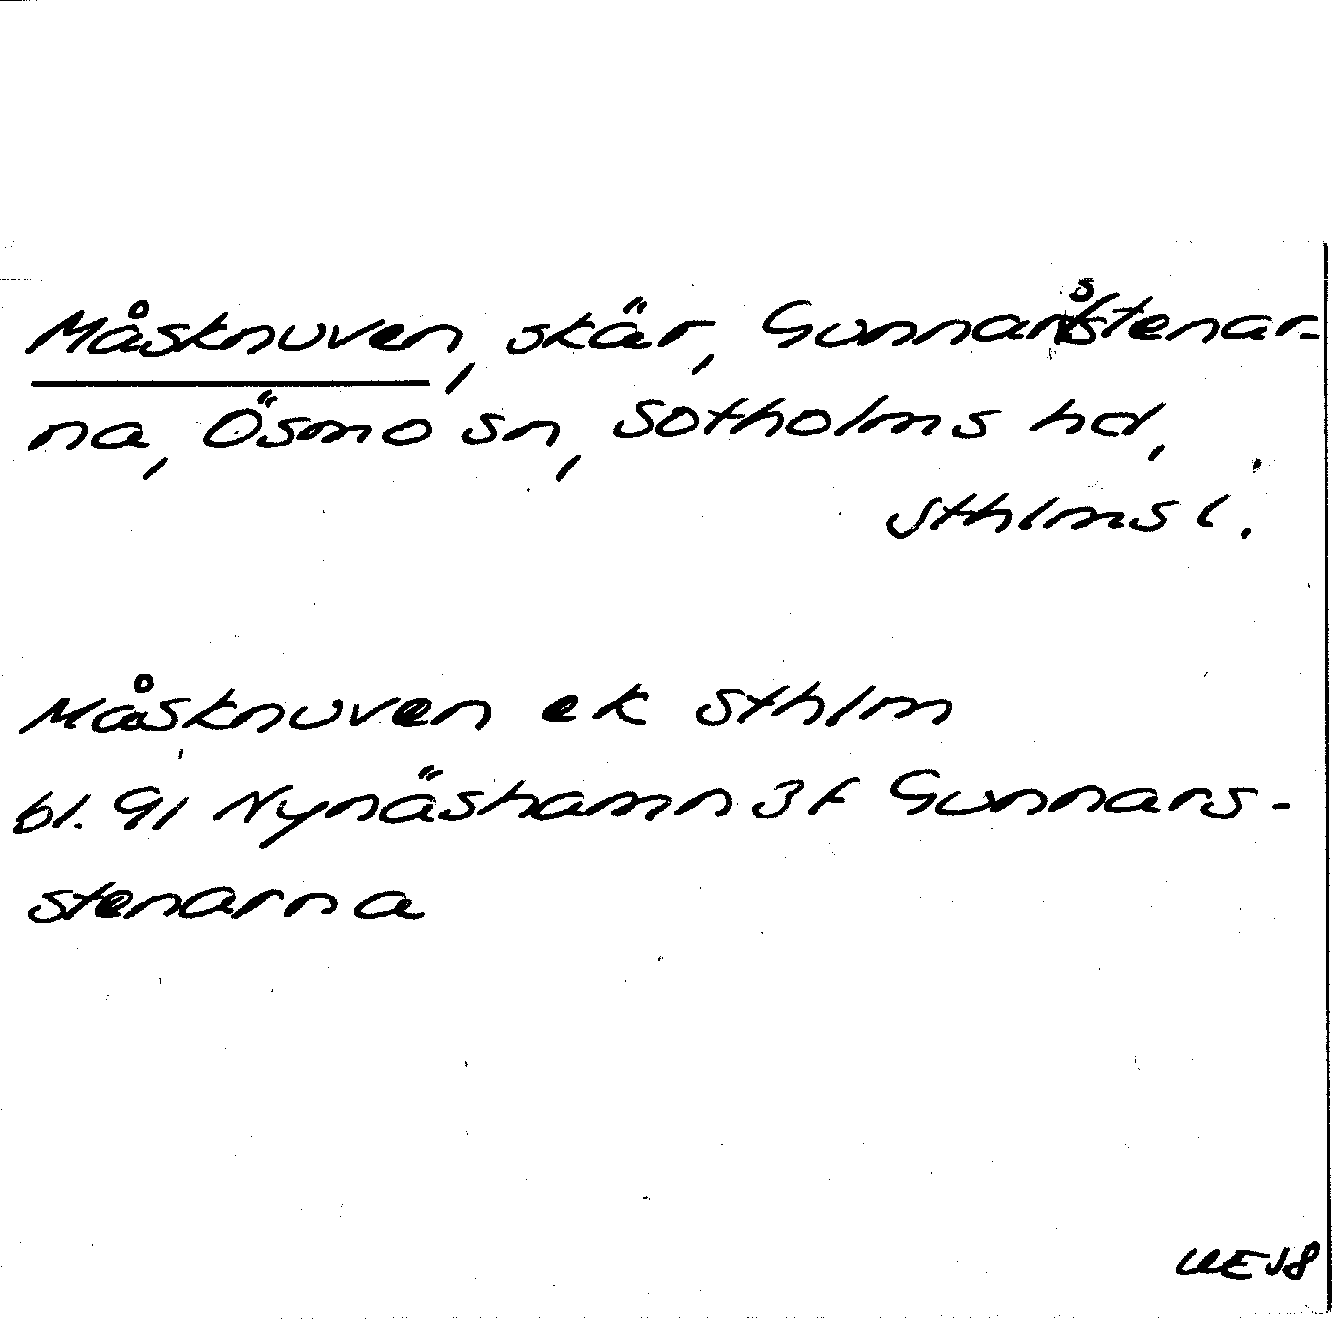 Måsknuven, skär, Gunnarsstenar-
na, Ösmo sn, Sotholms hd,
Sthlms l.
Måsknuven ek Sthlm
bl. 91 Nynäshamn 3f Gunnars-
stenarna